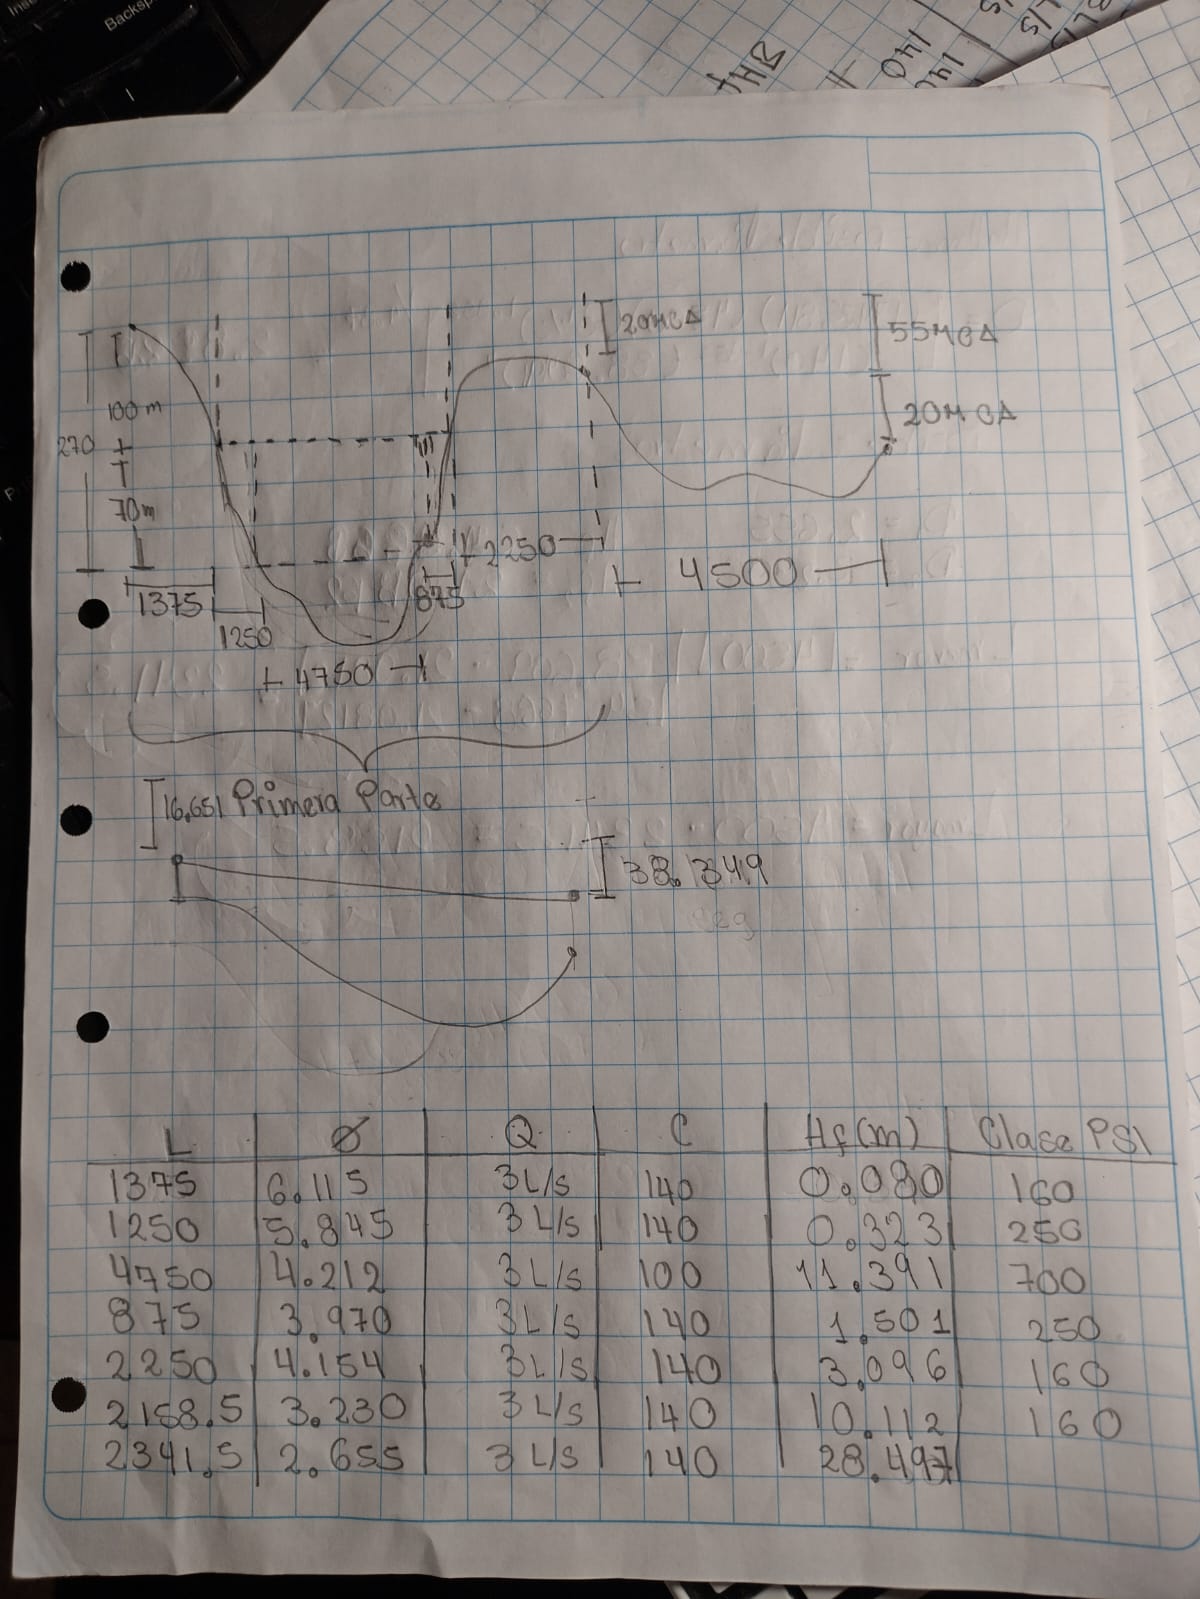 Backsp
140
L/S
20MCA
55MCA
100 m
20M CA
270
70m
2250
4500
1375
875
1250
4750
16,651 Primera Parte
38.1349
seg
L Ø Q C Hf(m) Clase PSI
1375 6.115 3L/s 140 0.080 160
1250 5.845 3L/s 140 0.323 250
4750 4.212 3L/s 100 11.391 700
875 3.970 3L/s 140 1.501 250
2250 4.154 3L/s 140 3.096 160
2158.5 3.230 3L/s 140 10.112 160
2341.5 2.655 3L/s 140 28.497